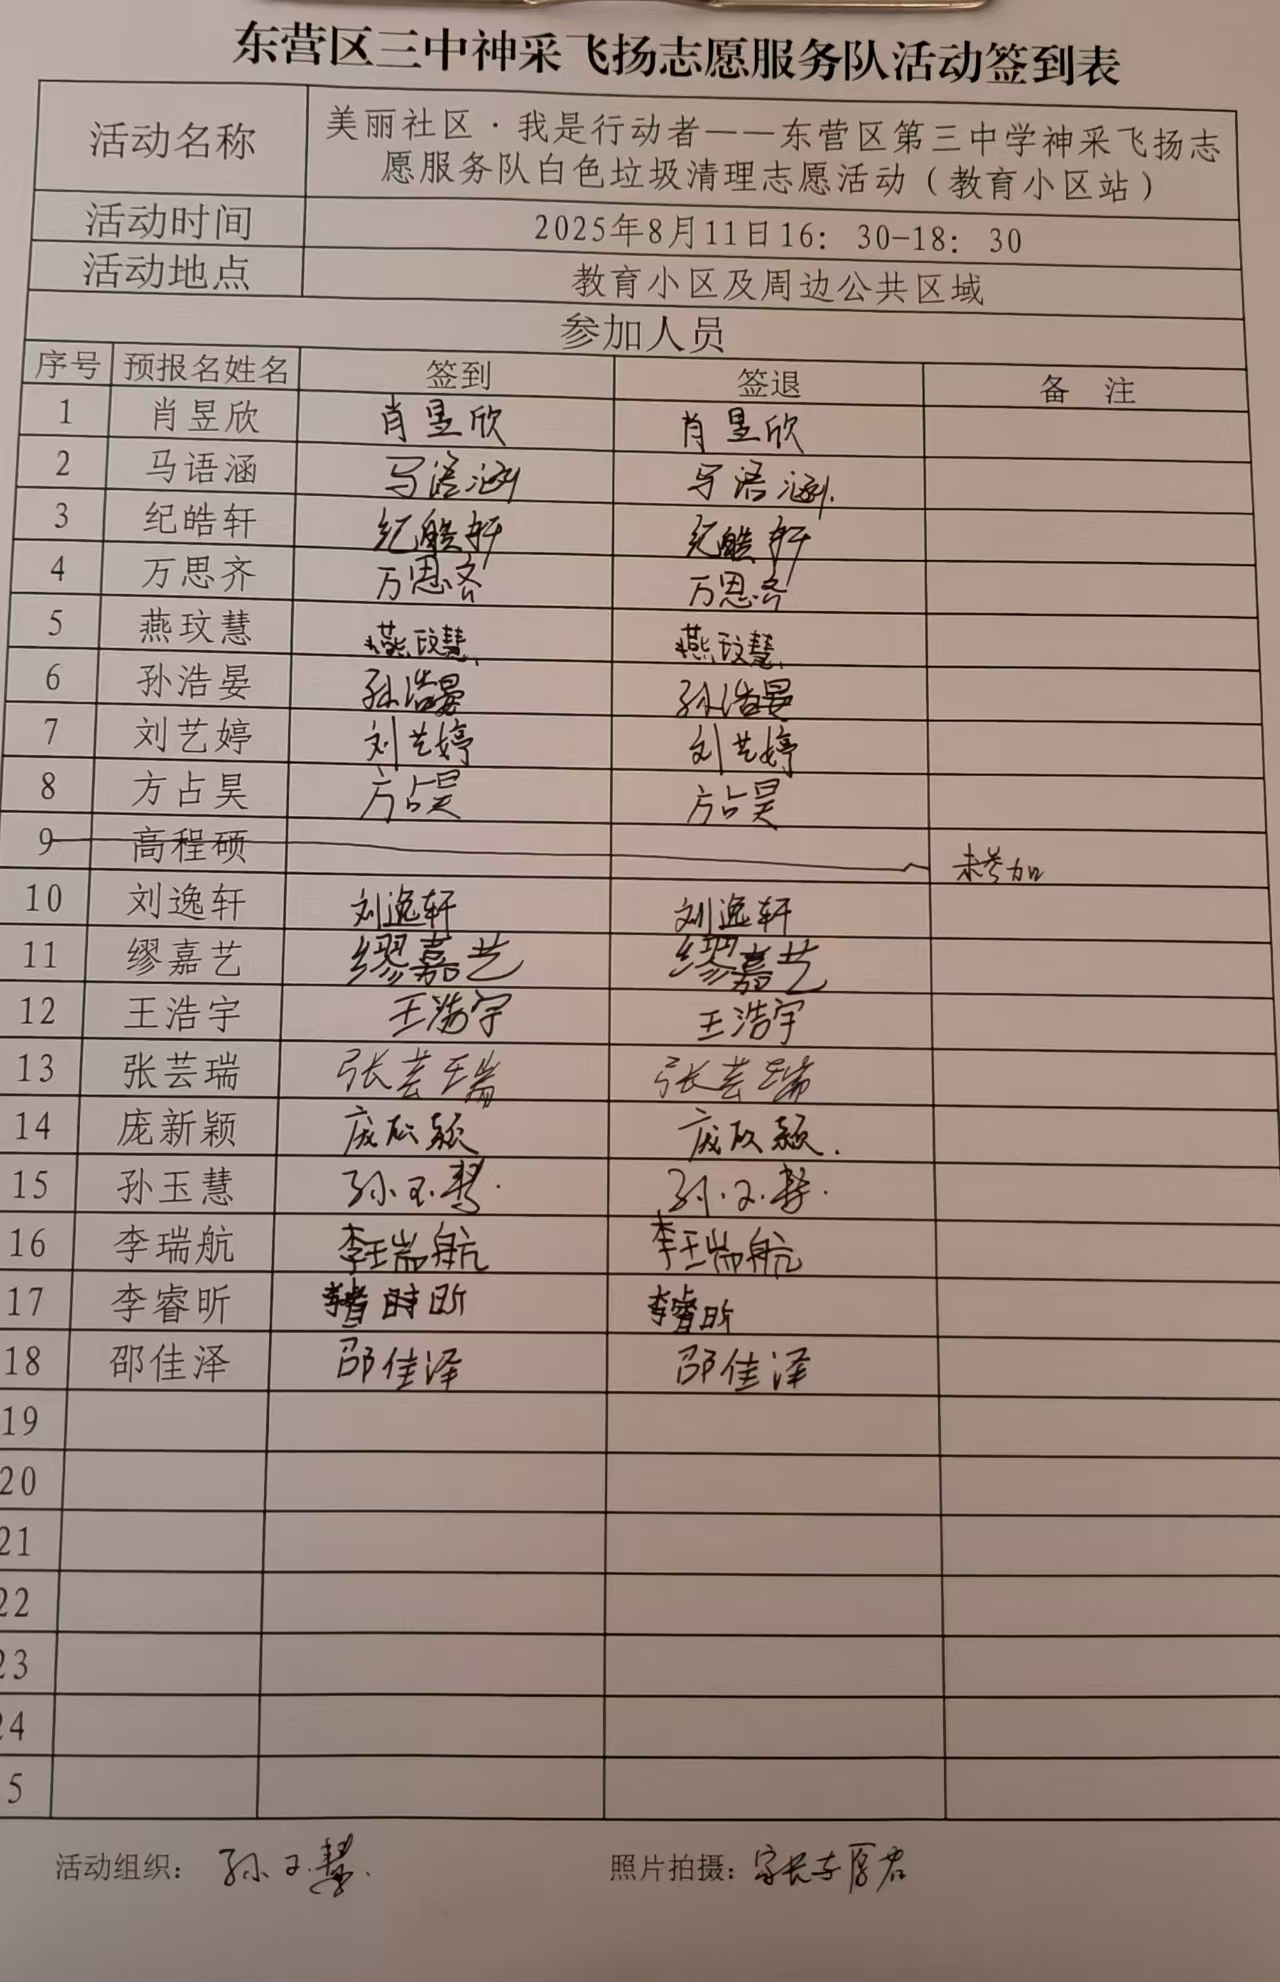 东营区三中神采飞扬志愿服务队活动签到表
活动名称 美丽社区·我是行动者——东营区第三中学神采飞扬志
愿服务队白色垃圾清理志愿活动（教育小区站）
活动时间 2025年8月11日16：30-18：30
活动地点 教育小区及周边公共区域
参加人员
序号 预报名姓名 签到 签退 备 注
1 肖昱欣 肖昱欣 肖昱欣
2 马语涵 马语涵 马语涵.
3 纪皓轩 纪皓轩 纪皓轩
4 万思齐 万思齐 万思齐
5 燕玟慧 燕玟慧. 燕玟慧.
6 孙浩晏 孙浩晏 孙浩晏
7 刘艺婷 刘艺婷 刘艺婷
8 方占昊 方占昊 方占昊
9 高程硕 未参加
10 刘逸轩 刘逸轩 刘逸轩
11 缪嘉艺 缪嘉艺 缪嘉艺
12 王浩宇 王浩宇 王浩宇
13 张芸瑞 张芸瑞 张芸瑞
14 庞新颖 庞新颖 庞新颖.
15 孙玉慧 孙玉慧. 孙玉慧.
16 李瑞航 李瑞航 李瑞航
17 李睿昕 李睿昕
18 邵佳泽 邵佳泽 邵佳泽
19
20
21
22
23
24
5
活动组织： 孙玉慧. 照片拍摄： 家长